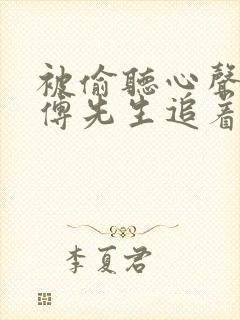 被偷聽心聲
傅先生追着
李夏君